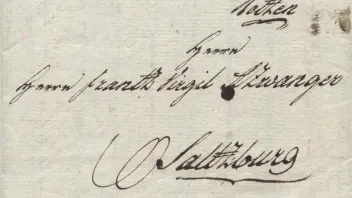 Herrn
Herrn Frantz Virgil Atzwanger
Saltzburg